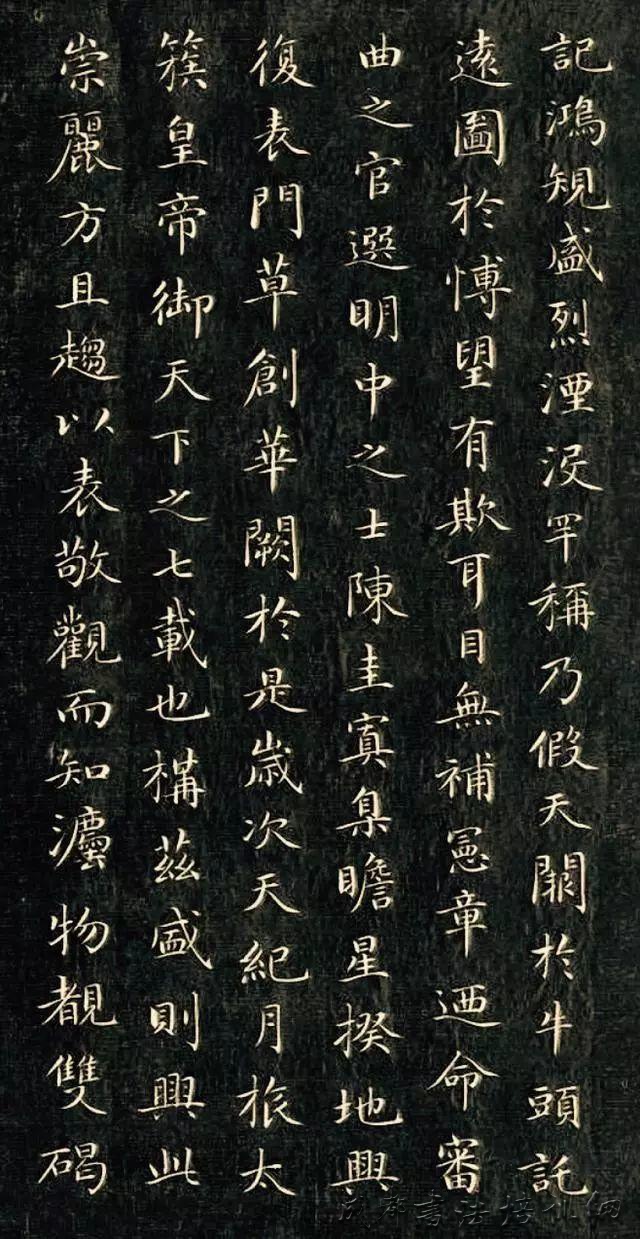 記鴻規盛烈湮沒罕稱乃假天闕於牛頭託
遠圖於愽望有欺耳目無補憲章迺命審
曲之官選明中之士陳圭寘臬瞻星揆地興
復表門草創華闕於是歲次天紀月旅太
簇皇帝御天下之七載也構茲盛則興此
崇麗方且趨以表敬觀而知灋物覩雙碣
成都書法培训网